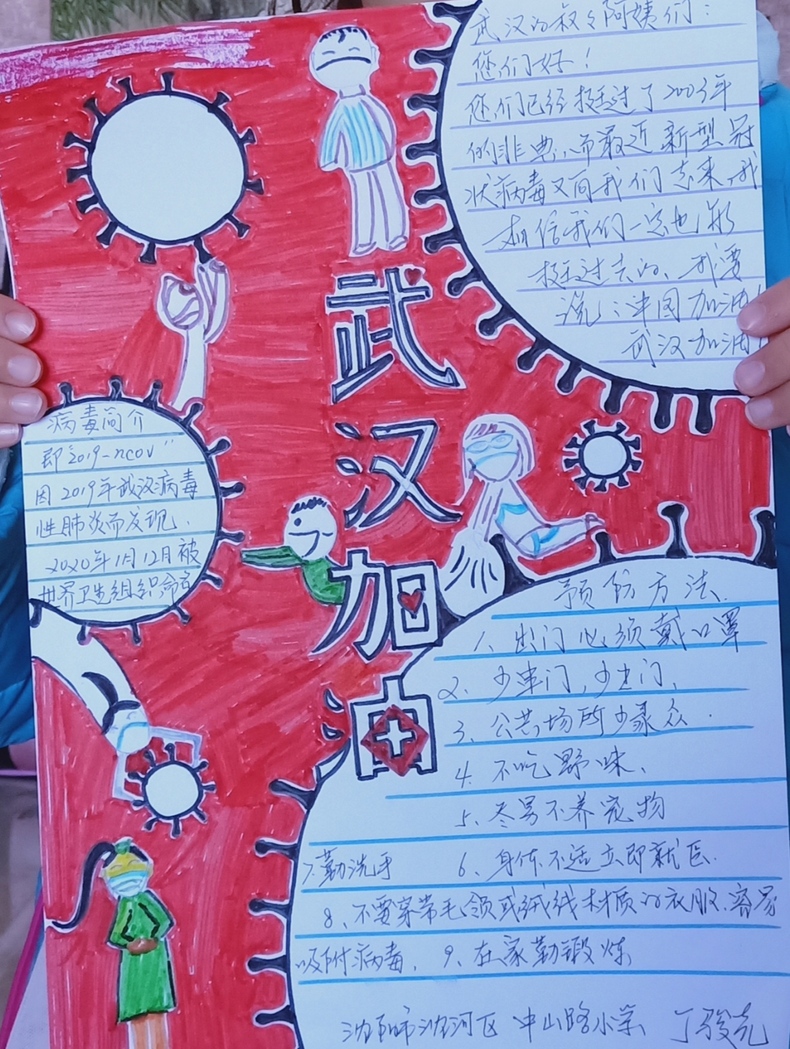 武汉的叔叔阿姨们：
您们好！
您们已经挺过了2003年
的非典，而最近新型冠
状病毒又向我们走来，我
相信我们一定也能
挺过去的、我要
说：中国加油！
武汉加油！
武汉加油
病毒简介
即"2019-ncov"
因2019年武汉病毒
性肺炎而发现、
2020年1月12日被
世界卫生组织命名
预防方法、
1、出门必须戴口罩
2、少串门，少出门、
3、公共场所少聚众.
4、不吃野味、
5、尽量不养宠物
6、身体不适立即就医.
7、勤洗手
8、不要穿带毛领或绒线材质的衣服.容易
吸附病毒、9、在家勤锻炼
沈阳市沈河区 中山路小学、丁骏尧